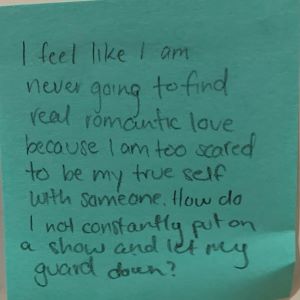 I feel like I am
never going to find
real romantic love
because I am too scared
to be my true self
with someone. How do
I not constantly put on
a show and let my
guard down?